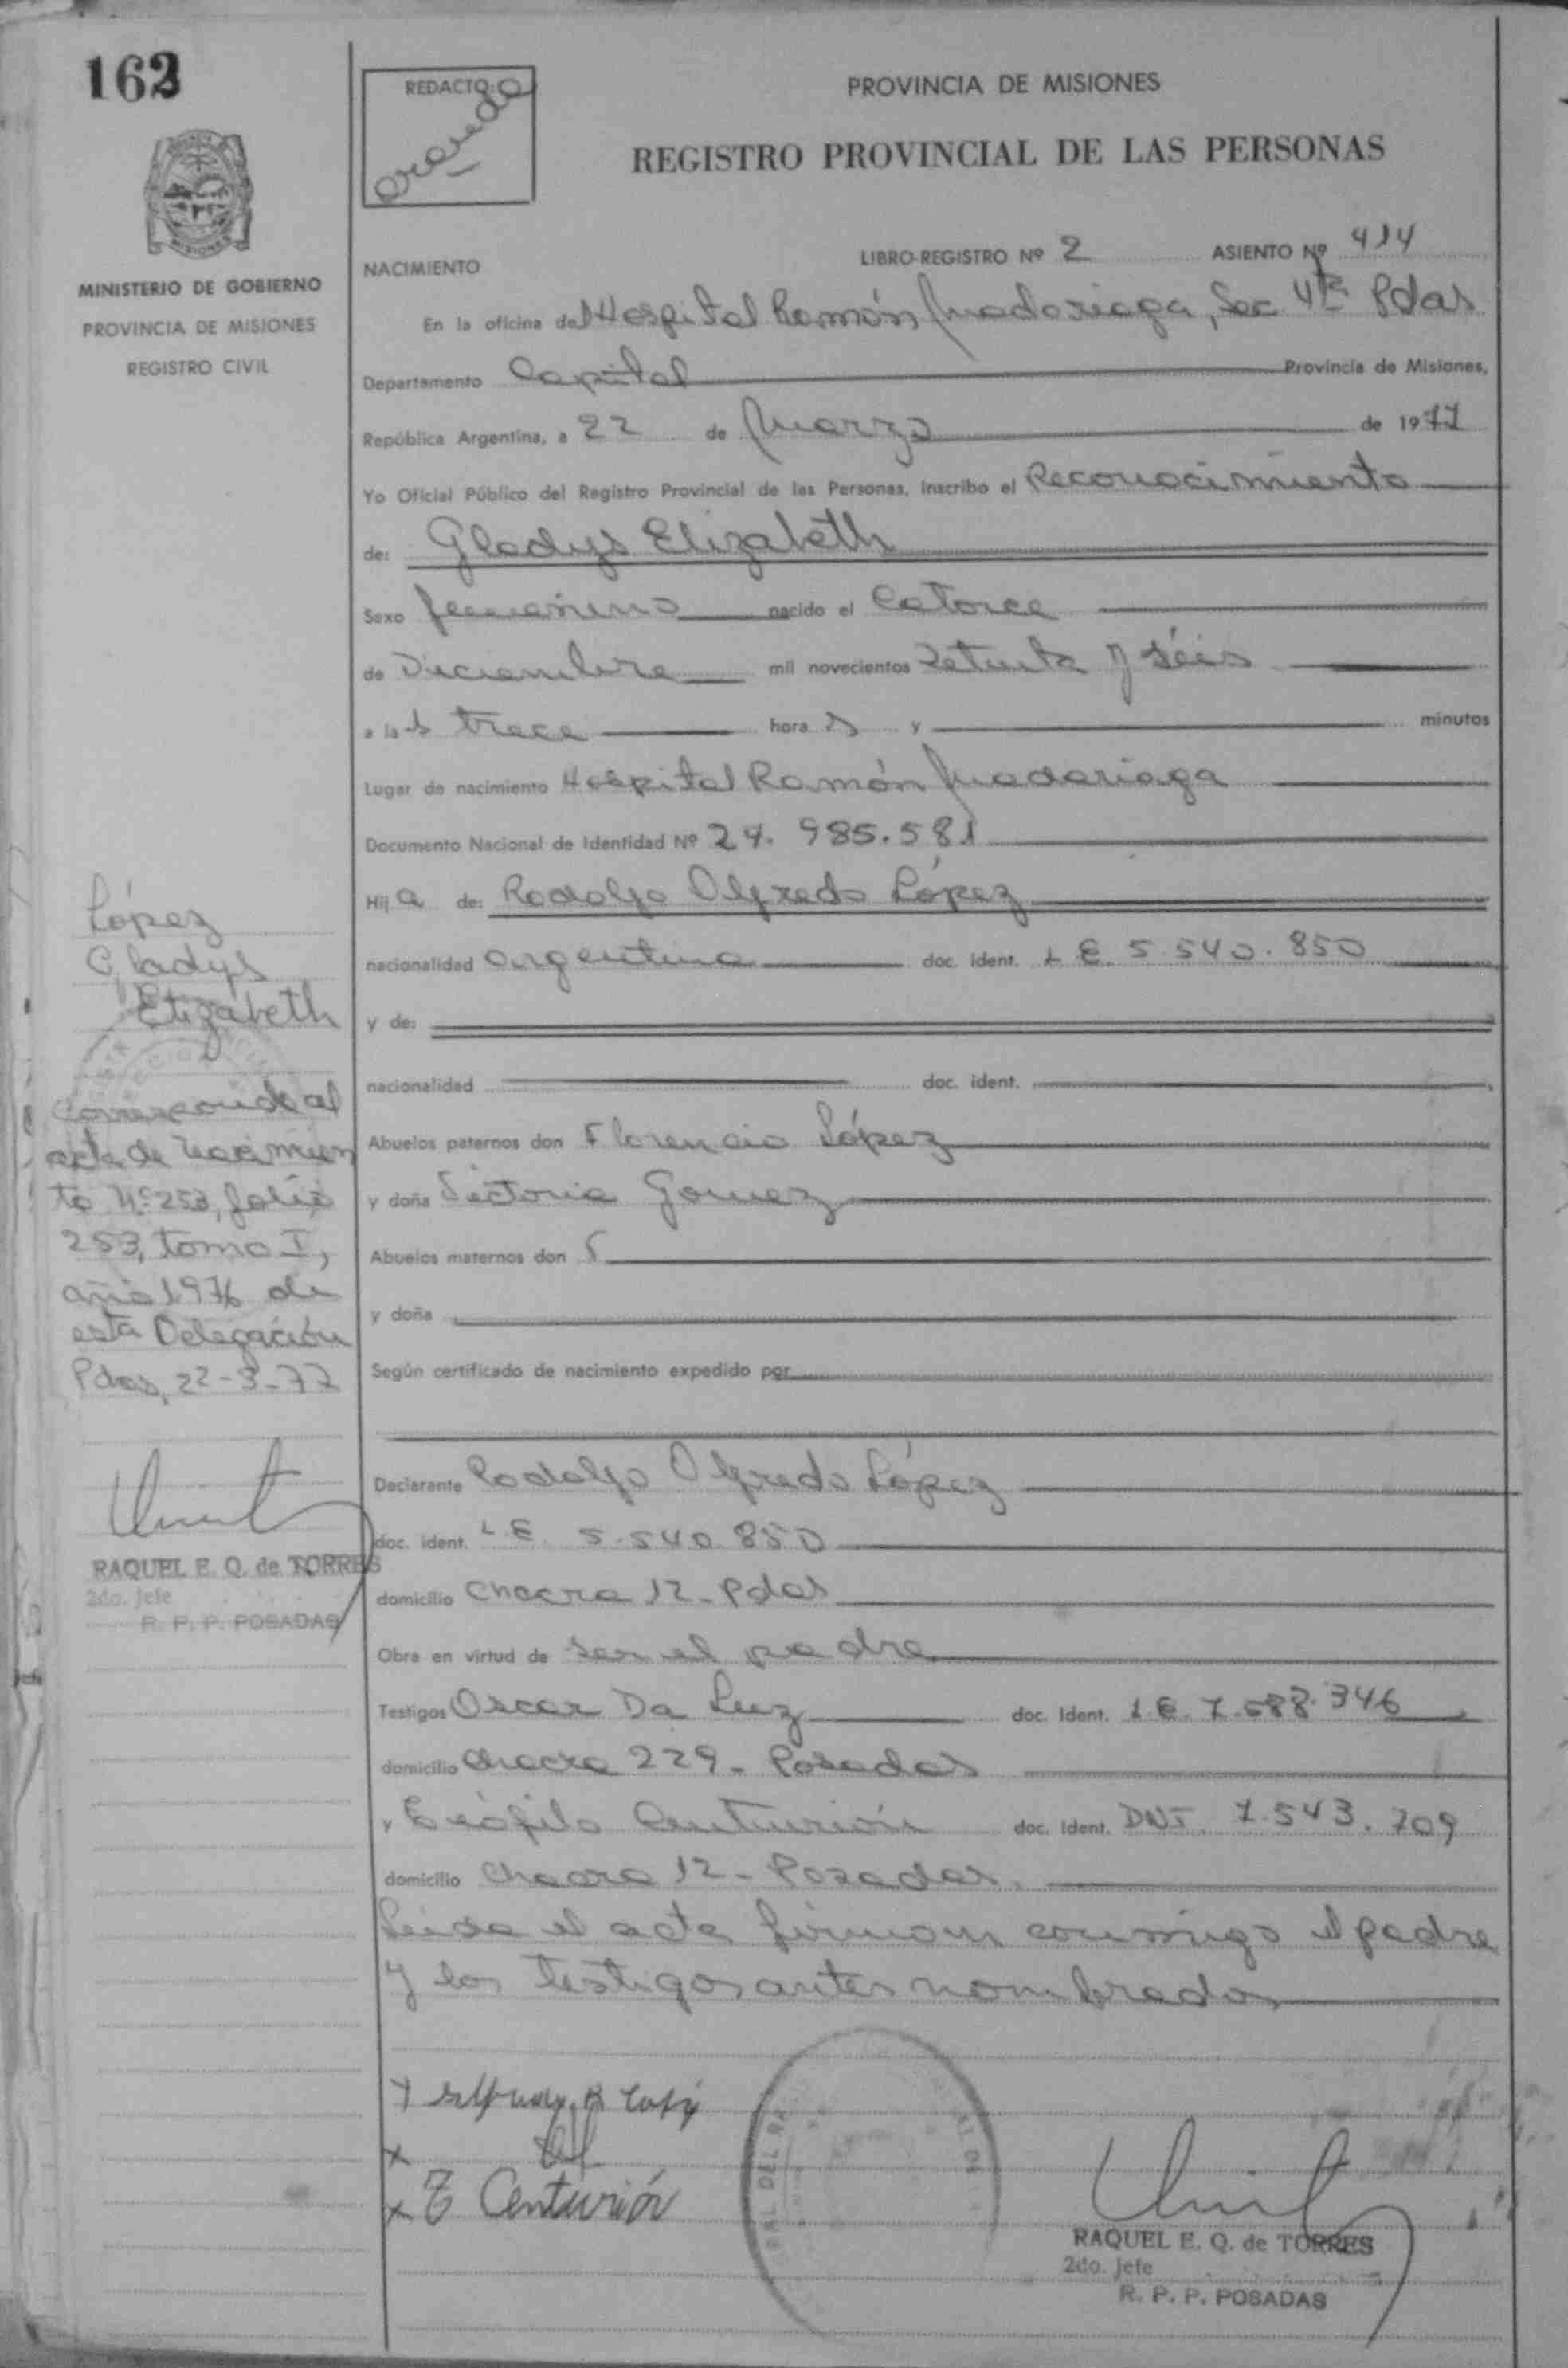 162
MINISTERIO DE GOBIERNO
PROVINCIA DE MISIONES
REGISTRO CIVIL
López
Gladys
Elizabeth
corresponde al
acta de nacimien
to Nº 253, folio
253, tomo I,
año 1976 de
esta Delegación
Pdas, 22-3-77
RAQUEL E. Q. de TORRES
2do. Jefe
R. P. P. POSADAS
REDACTO:
PROVINCIA DE MISIONES
REGISTRO PROVINCIAL DE LAS PERSONAS
NACIMIENTO LIBRO-REGISTRO Nº 2 ASIENTO Nº 414
En la oficina del Hospital Ramón Madariaga, Sec 4ta Pdas
Departamento Capital Provincia de Misiones,
República Argentina, a 22 de Marzo de 1977
Yo Oficial Público del Registro Provincial de las Personas, inscribo el Reconocimiento
de: Gladys Elizabeth
Sexo femenino nacido el Catorce
de Diciembre mil novecientos Setenta y séis
a las trece horas y minutos
Lugar de nacimiento Hospital Ramón Madariaga
Documento Nacional de Identidad Nº 24.985.581
Hija de: Rodolfo Alfredo López
nacionalidad argentina doc. ident. L E. 5.540.850
y de:
nacionalidad doc. ident.
Abuelos paternos don Florencio López
y doña Victoria Gomez
Abuelos maternos don
y doña
Según certificado de nacimiento expedido por
Declarante Rodolfo Alfredo López
doc. ident. L E. 5.540.850
domicilio Chacra 12-Pdas
Obra en virtud de ser el padre
Testigos Oscar Da Luz doc. Ident. L E. 7.588.346
domicilio Chacra 229- Posadas
y Teófilo Centurión doc. Ident. DNI. 7.543.709
domicilio Chacra 12- Posadas.
Leida el acta firman conmigo el padre
y los testigos antes nombrados
x
x
x T Centurión
RAQUEL E. Q. de TORRES
2do. Jefe
R. P. P. POSADAS